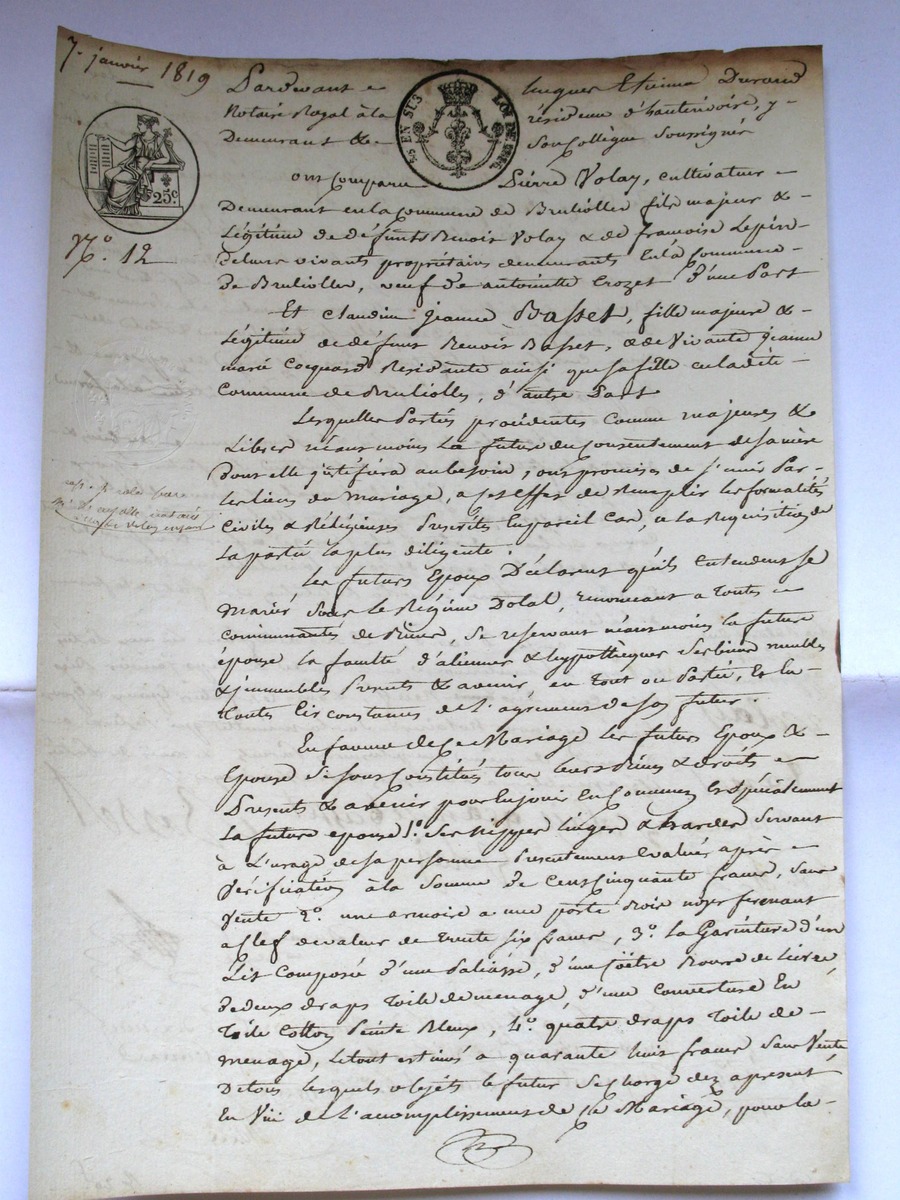 7. janvier 1819
Pardevant
Jacques Etienne Durand
Notaire Royal à la
résidence d'hauterivoire, y
Demeurant &
Son Collègue Soussignés
EN SUS
LOI DE 1816
25c
N.º 12
ont Comparu Pierre Volay, cultivateur
Demeurant en la Commune de Brulliolles fils majeur &
Légitime de défunts Benoit Volay & de françoise Lepin
de leurs vivants propriétaires demeurants En la Commune
de Brulliolles, veuf de antoinette Crozet d'une Part
Et claudine jeanne Basset, fille majeure &
Légitime de défunt Benoit Basset, & de Vivante jeanne
marie Coquard Residante ainsi que sa fille en la dite
Commune de Brulliolles, d'autre Part
Lesquelles Parties procédentes Comme majeures &
Libres néansmoins La future du Consentement de sa mère
dont elle justifiera au besoin, ont promises de s'unir Par
les liens du Mariage, a cet effet de Remplir les formalités
Civiles & Réligieuses Prescrites En pareil Cas, a la Requisition de
La partie la plus diligente.
Les futurs Epoux Déclarent qu'ils entendent se
Mariér Sous le Régime Dotal, renonceant a Toutes
Communautés de Biens, Se reservant néansmoins la future
épouse la faculté d'aliener & hypothequer Ses biens meubles
& immeubles Presents & avenir, en Tout ou Partie, En
Toutes Circonstances de L'agrément de Son futur.
En faveur de Ce Mariage Les futurs Epoux &
Epouse Se Sont Constitués tous leurs Biens & droits
Presents & avenir pour En jouir En Commun Et Spécialement
La future epouse 1º. Ses nippes linges & hardes Servant
à L'usage de sa personne Presentement Evalués après
Vérification à la Somme de Cent Cinquante francs, Sans
Vente 2º. une armoire a une porte Bois noyer fermant
a Clef de valeur de Trente Six francs, 3º. La Garniture d'un
Lit Composée d'une Paliasse, d'une Bourre de Lievre,
de deux draps Toile de menage, d'une Couverture En
Toile Cotton Peinte Bleux, 4º. quatre draps Toile de
menage, Le tout estimés a quarante huit francs Sans Vente
De tous lesquels objets le futur Se Charge dez apresent
En Vue de L'accomplissement de Ce Mariage, pour la